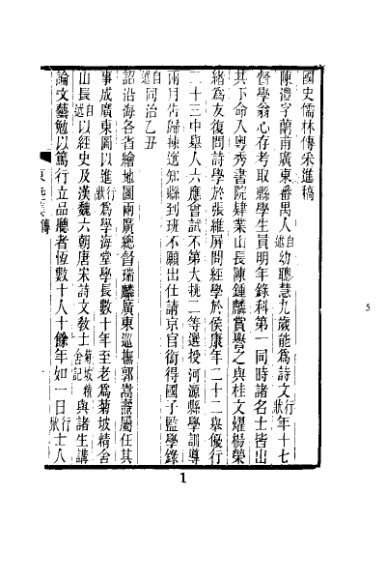 國史儒林傳采進稿
陳澧字蘭甫廣東番禺人自述幼聰慧九歲能為詩文行狀年十七
督學翁心存考取縣學生員明年錄科第一同時諸名士皆出
其下命入粵秀書院肄業山長陳鍾麟賞譽之與桂文燿楊榮
緒為友復問詩學於張維屏問經學於侯康年二十二舉優行
二十三中舉人六應會試不第大挑二等選授河源縣學訓導
兩月告歸揀選知縣到班不願出仕請京官銜得國子監學錄
自述同治乙丑
詔沿海各省繪地圖兩廣總督瑞麟廣東巡撫郭嵩燾屬任其
事成廣東圖以進行狀為學海堂學長數十年至老為菊坡精舍
山長自述以經史及漢魏六朝唐宋詩文教士菊坡精舍記與諸生講
論文藝勉以篤行立品聽者恆數十人十餘年如一日行狀士人
東塾集傳
1
5